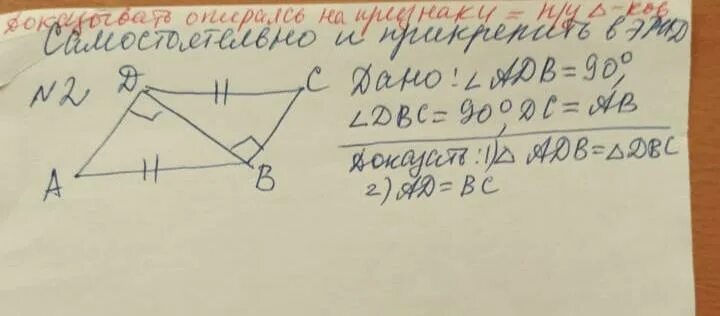 Доказывать опираясь на признаки = п/у Δ-ков
Самостоятельно и прикрепить в ЭЖД
N2
D
C
A
B
Дано: ∠ADB = 90°,
∠DBC = 90°, DC = AB
Доказать: 1) Δ ADB = Δ DBC
2) AD = BC